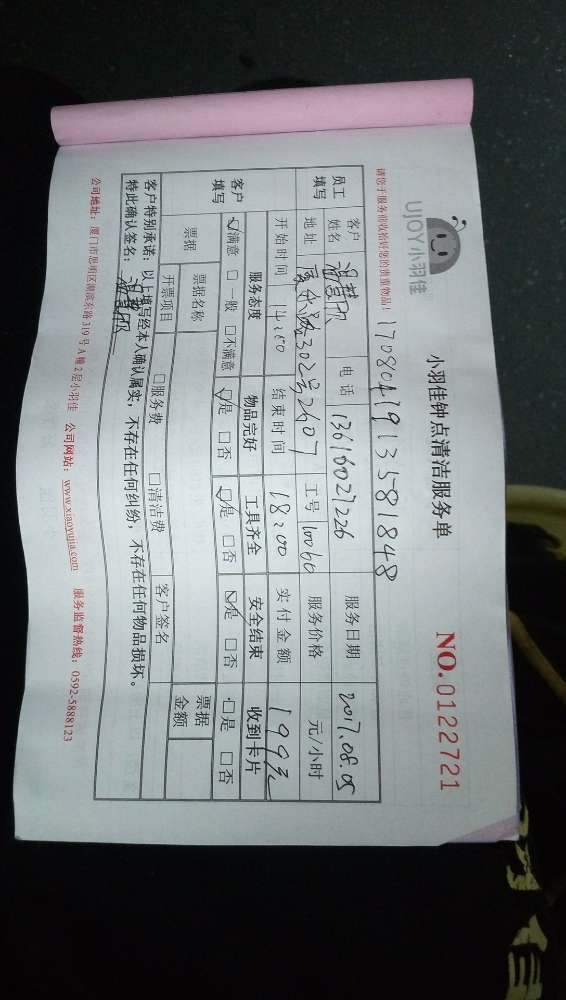 UJOY小羽佳
小羽佳钟点清洁服务单
NO.0122721
请您于服务前收拾好您的贵重物品!
17080419135581848
员工填写 客户姓名 电话 13616027226 服务日期 2017.08.05
地址 302号2607 工号 10060 服务价格 元/小时
开始时间 14:00 结束时间 18:00 实付金额 199元
客户填写 服务态度 物品完好 工具齐全 安全结束 收到卡片
☑满意 □一般 □不满意 ☑是 □否 ☑是 □否 ☑是 □否 □是 □否
票据 票据名称 票据金额
开票项目 □服务费 □清洁费 客户签名
客户特别承诺:以上填写经本人确认属实,不存在任何纠纷,不存在任何物品损坏。
特此确认签名:
公司地址:厦门市思明区湖滨东路319号A幢2层小羽佳 公司网站:www.xiaoyujia.com 服务监督热线:0592-5888123